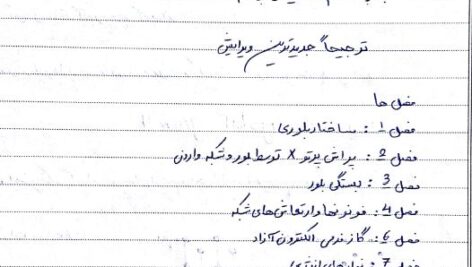 ترجیحاً جدیدترین ویرایش
فصل ها
فصل 1: ساختار بلوری
فصل 2: پراش پرتو X توسط بلور و شبکه وارون
فصل 3: بستگی بلور
فصل 4: فونونها و ارتعاش های شبکه
فصل 6: گاز فرمی الکترون آزاد
فصل 7: نوارهای انرژی